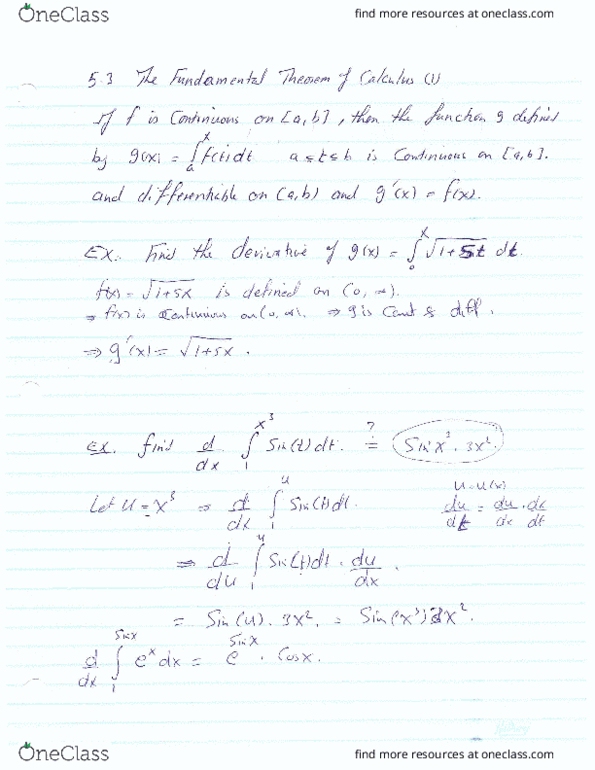 OneClass
find more resources at oneclass.com
5.3 The Fundamental Theorem of Calculus (1)
If f is Continuous on [a,b], then the function g defined
by g(x) = ∫ₐˣ f(t)dt a≤t≤b is Continuous on [a,b].
and differentiable on (a,b) and g'(x) = f(x).
Ex: Find the derivative of g(x) = ∫₀ˣ √(1+5t) dt.
f(x) = √(1+5x) is defined on (0, ∞).
⇒ f(x) is Continuous on (0, ∞). ⇒ g is Cont & diff.
⇒ g'(x) = √(1+5x).
Ex. find d/dx ∫₁^(x³) Sin(t)dt. =? Sin x³ · 3x²
Let u = x³ ⇒ d/dx ∫₁ᵘ Sin(t)dt.
u = u(x)
du/dt = du/dx · dx/dt
⇒ d/du ∫₁ᵘ Sin(t)dt · du/dx.
= Sin(u) · 3x². = Sin(x³)3x².
d/dx ∫₁^(Sinx) eˣ dx = e^(Sinx) · Cosx.
OneClass
find more resources at oneclass.com